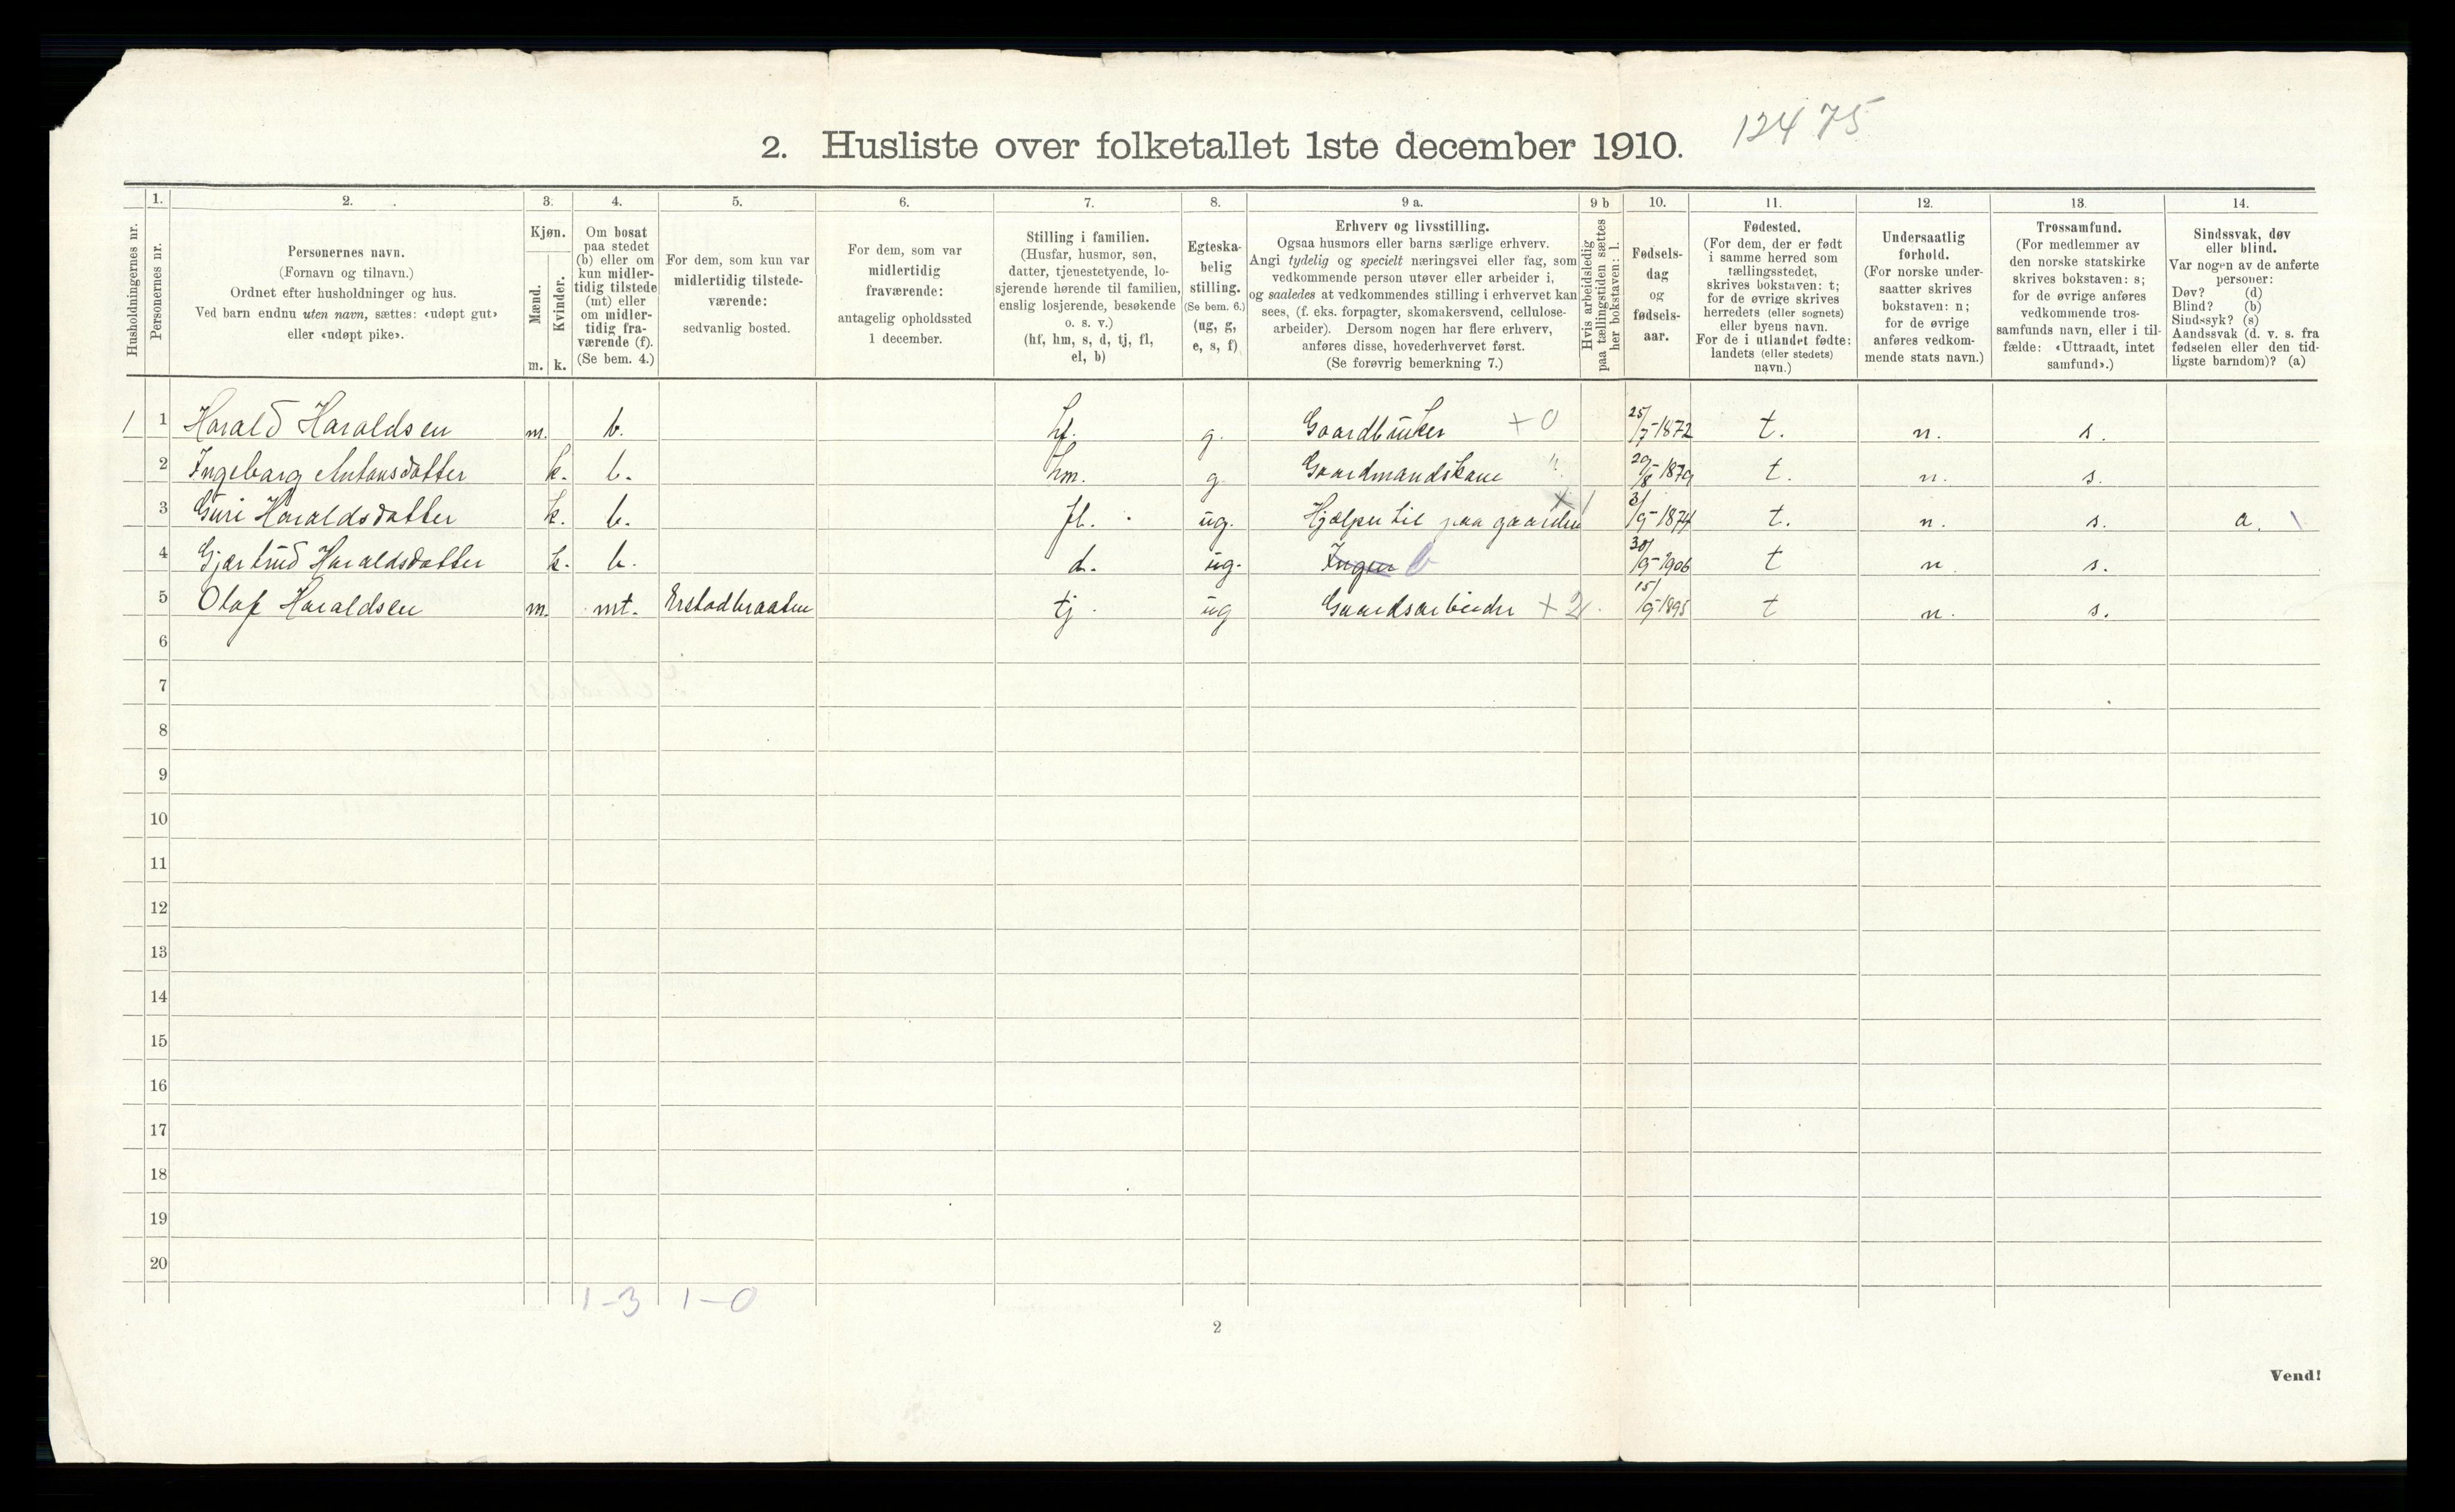 12475
2. Husliste over folketallet 1ste december 1910.
Husholdningernes nr.
1.
Personernes nr.
2.
Personernes navn.
(Fornavn og tilnavn.)
Ordnet efter husholdninger og hus.
Ved barn endnu uten navn, sættes: «udøpt gut»
eller «udøpt pike».
3.
Kjøn.
Mænd.
m.
Kvinder.
k.
4.
Om bosat
paa stedet
(b) eller om
kun midler-
tidig tilstede
(mt) eller
om midler-
tidig fra-
værende (f).
(Se bem. 4.)
5.
For dem, som kun var
midlertidig tilstede-
værende:
sedvanlig bosted.
6.
For dem, som var
midlertidig
fraværende:
antagelig opholdssted
1 december.
7.
Stilling i familien.
(Husfar, husmor, søn,
datter, tjenestetyende, lo-
sjerende hørende til familien,
enslig losjerende, besøkende
o. s. v.)
(hf, hm, s, d, tj, fl,
el, b)
8.
Egteska-
belig
stilling.
(Se bem. 6.)
(ug, g,
e, s, f)
9 a.
Erhverv og livsstilling.
Ogsaa husmors eller barns særlige erhverv.
Angi tydelig og specielt næringsvei eller fag, som
vedkommende person utøver eller arbeider i,
og saaledes at vedkommendes stilling i erhvervet kan
sees, (f. eks. forpagter, skomakersvend, cellulose-
arbeider). Dersom nogen har flere erhverv,
anføres disse, hovederhvervet først.
(Se forøvrig bemerkning 7.)
9 b
Hvis arbeidsledig
paa tællingstiden sættes
her bokstaven: l.
10.
Fødsels-
dag
og
fødsels-
aar.
11.
Fødested.
(For dem, der er født
i samme herred som
tællingsstedet,
skrives bokstaven: t;
for de øvrige skrives
herredets (eller sognets)
eller byens navn.
For de i utlandet fødte:
landets (eller stedets)
navn.)
12.
Undersaatlig
forhold.
(For norske under-
saatter skrives
bokstaven: n;
for de øvrige
anføres vedkom-
mende stats navn.)
13.
Trossamfund.
(For medlemmer av
den norske statskirke
skrives bokstaven: s;
for de øvrige anføres
vedkommende tros-
samfunds navn, eller i til-
fælde: «Uttraadt, intet
samfund».)
14.
Sindssvak, døv
eller blind.
Var nogen av de anførte
personer:
Døv? (d)
Blind? (b)
Sindssyk? (s)
Aandssvak (d. v. s. fra
fødselen eller den tid-
ligste barndom)? (a)
1 1 Harald Haraldsen m. b. hf. g. Gaardbruker + 0 25/7-1872 t. n. s.
2 Ingebarg Antonsdatter k. b. hm. g Gaardmandskone " 29/8 1879 t. n. s.
3 Guri Haraldsdatter k. b. fl. ug. Hjælper til paa gaarden 3/9-1874 t. n. s. a.
4 Gjertrud Haraldsdatter k. b. d. ug. Ingen b 30/9-1906 t n. s.
5 Olaf Haraldsen m. mt. Erstadbraaten tj. ug Gaardsarbeider + 2 15/9-1895 t n. s.
6
7
8
9
10
11
12
13
14
15
16
17
18
19
20
1-3 1-0
2
Vend!